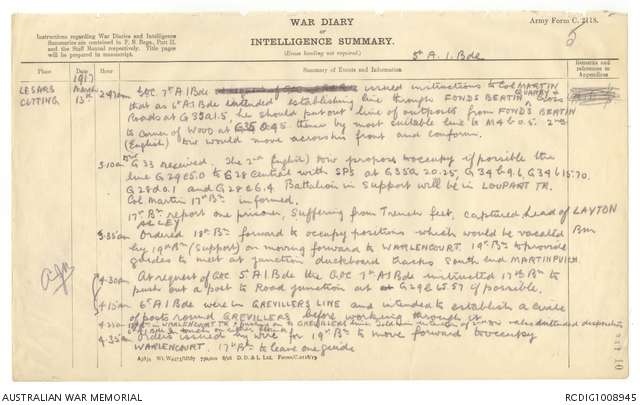 WAR DIARY
or
INTELLIGENCE SUMMARY.
(Erase heading not required).
Army Form C. 2118.
Instructions regarding War Diaries and Intelligence
Summaries are contained in F. S. Regs., Part II.
and the Staff Manual respectively. Title pages
will be prepared in manuscript.
5th A. I. Bde
5
Place
Date
Hour
Summary of Events and Information
Remarks and
references to
Appendices
LESARS
CUTTING
1917
March
13th
2.47am GOC 7th A I Bde issued instructions to Col MARTIN
that as 6th A I Bde intended establishing line through FONDS BEATIN QUARRY & Cross
Roads at G35a1.5, he should put out line of outposts from FONDS BEATIN
to corner of wood at G35 0.95 thence by most suitable line to M4b0.5. 2nd
(English) Div would move across his front and conform.
3.10am G33 received. The 2nd English Div proposes to occupy if possible the
line G29c5.0 to G28 Central with SPs at G35a20.25, G34b9.6, G34b15.70.
G28d0.1 and G28c6.4 Battalion in Support will be in LOUPART TR.
Col Martin 17th Bn informed.
17th Bn report one prisoner, suffering from Trench feet, captured head of LAYTON
ALLEY
3.35am Ordered 18th Bn forward to occupy positions which would be vacated
by 19th Bn (Support) on moving forward to WARLENCOURT 19th Bn to provide
guides to meet at junction duckboard tracks South end MARTINPUICH
4.30am At request of GOC 5th A.I Bde the GOC 7th A I Bde instructed 17th Bn to
push out a post to Road junction at G29c65.57 if possible.
4.15am 6th A I Bde were in GREVILLERS LINE and intended to establish a circle
of posts round GREVILLERS before working through it
4.21am
4.35am Orders issued by wire for 19th Bn to move forward to occupy
WARLENCOURT. 17th Bn to leave one guide
AUSTRALIAN WAR MEMORIAL
RCDIG1008945